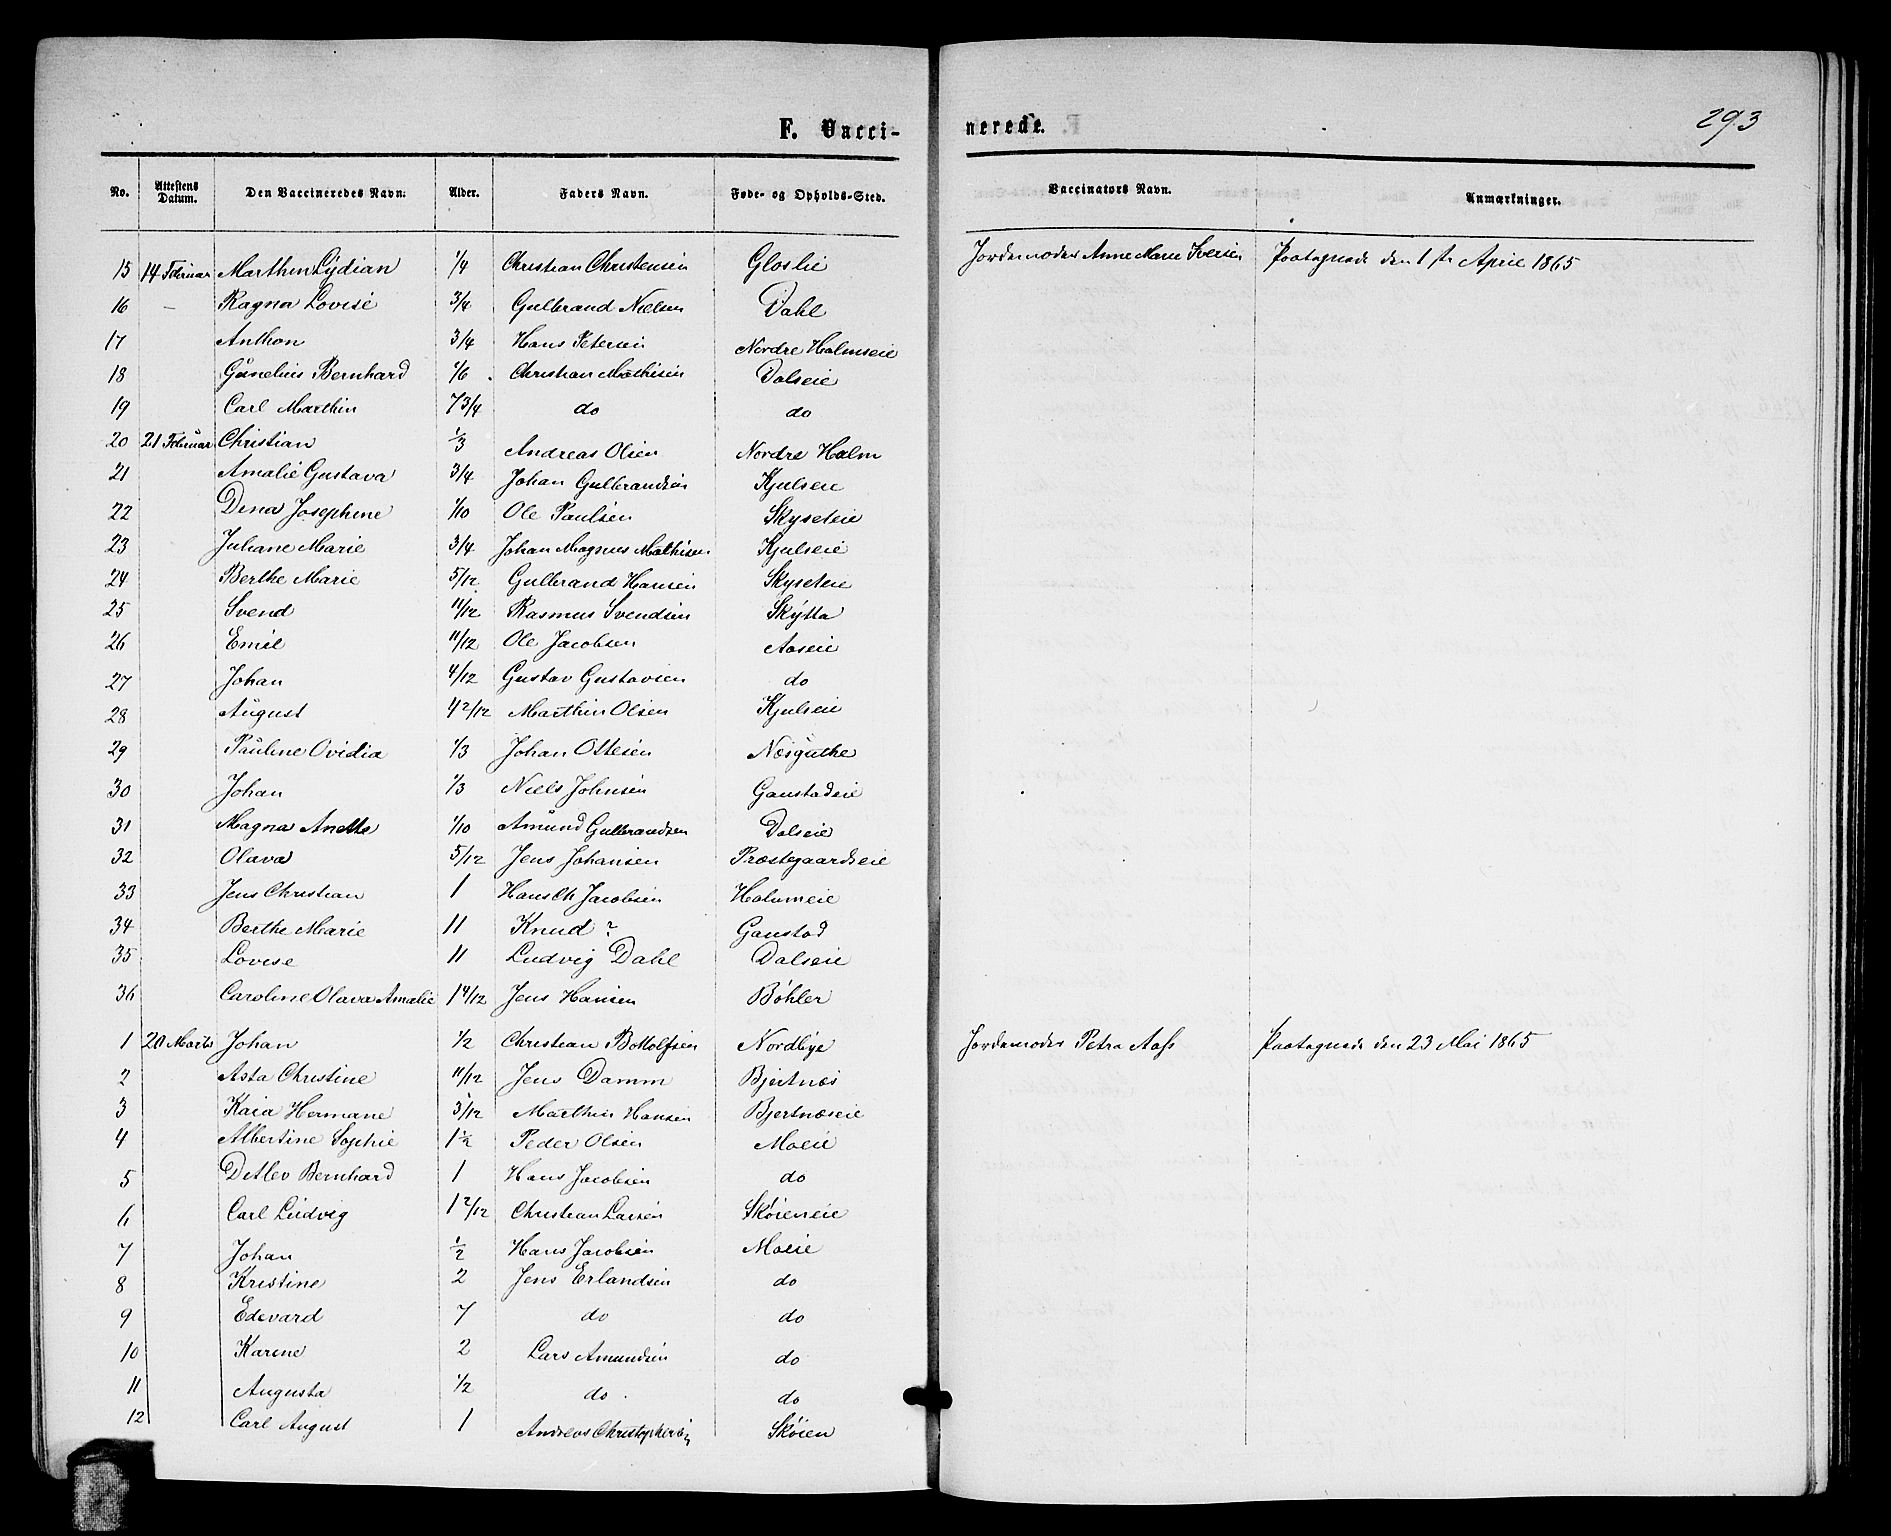 293
F. Vaccinerede.
No. Attestens Datum. Den Vaccineredes Navn. Alder. Faders Navn. Føde- og Opholds-Sted. Vaccinators Navn. Anmærkninger.
15 14 Februar Marthin Lydian 1/4 Christian Christensen Gloslie Jordemoder Anne Marie Iversen Paategnede den 1ste April 1865
16 — Ragna Lovise 3/4 Gulbrand Nielsen Dahl
17 Anthon 3/4 Hans Petersen Nordre Holmseie
18 Gunelius Bernhard 1/6 Christian Mathisen Dalseie
19 Carl Marthin 7 3/4 do do
20 21 Februar Christian 1/3 Andreas Olsen Nordre Holm
21 Amalie Gustava 3/4 Johan Gulbrandsen Kjulseie
22 Dina Josephine 1/10 Ole Paulsen Skyseteie
23 Juliane Marie 3/4 Johan Magnus Mathisen Kjulseie
24 Berthe Marie 5/12 Gulbrand Hansen Skyseteie
25 Svend 11/12 Rasmus Svendsen Skytta
26 Emil 11/12 Ole Jacobsen Aaseie
27 Johan 4/12 Gustav Gustavsen do
28 August 4 2/12 Marthin Olsen Kjulseie
29 Pauline Ovidia 1/3 Johan Ottesen Næsguthe
30 Johan 1/3 Niels Johnsen Gaustadeie
31 Magna Anette 1/10 Amund Gulbrandsen Dalseie
32 Olava 5/12 Jens Johansen Præstegaardseie
33 Jens Christian 1 Hans Ch Jacobsen Holumeie
34 Berthe Marie 11 Knud ? Gaustad
35 Lovise 11 Ludvig Dahl Dalseie
36 Caroline Olava Amalie 1 4/12 Jens Hansen Bøhler
1 20 Marts Johan 1/2 Christian Bottolfsen Nordbye Jordemoder Petra Aass Paategnede den 23 Mai 1865
2 Asta Christine 11/12 Jens Damm Bjertnæs
3 Kaia Hermane 5/12 Marthin Hansen Bjertnæseie
4 Albertine Sophie 1 1/2 Peder Olsen Moeie
5 Detlev Bernhard 1 Hans Jacobsen do
6 Carl Ludvig 1 2/12 Christian Larsen Skøieneie
7 Johan 1/2 Hans Jacobsen Moeie
8 Kristine 2 Jens Erlandsen do
9 Edevard 7 do do
10 Karine 2 Lars Amundsen do
11 Augusta 1/2 do do
12 Carl August 1 Andreas Christophersen Skøien